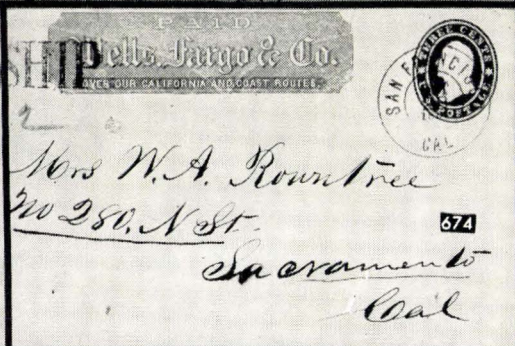 PAID
Wells, Fargo & Co.
OVER OUR CALIFORNIA AND COAST ROUTES.
SHIP
2
THREE CENTS
U.S. POSTAGE
SAN FRANCISCO
CAL
Mrs W. A. Rowntree
No 280, N St.
674
Sacramento
Cal